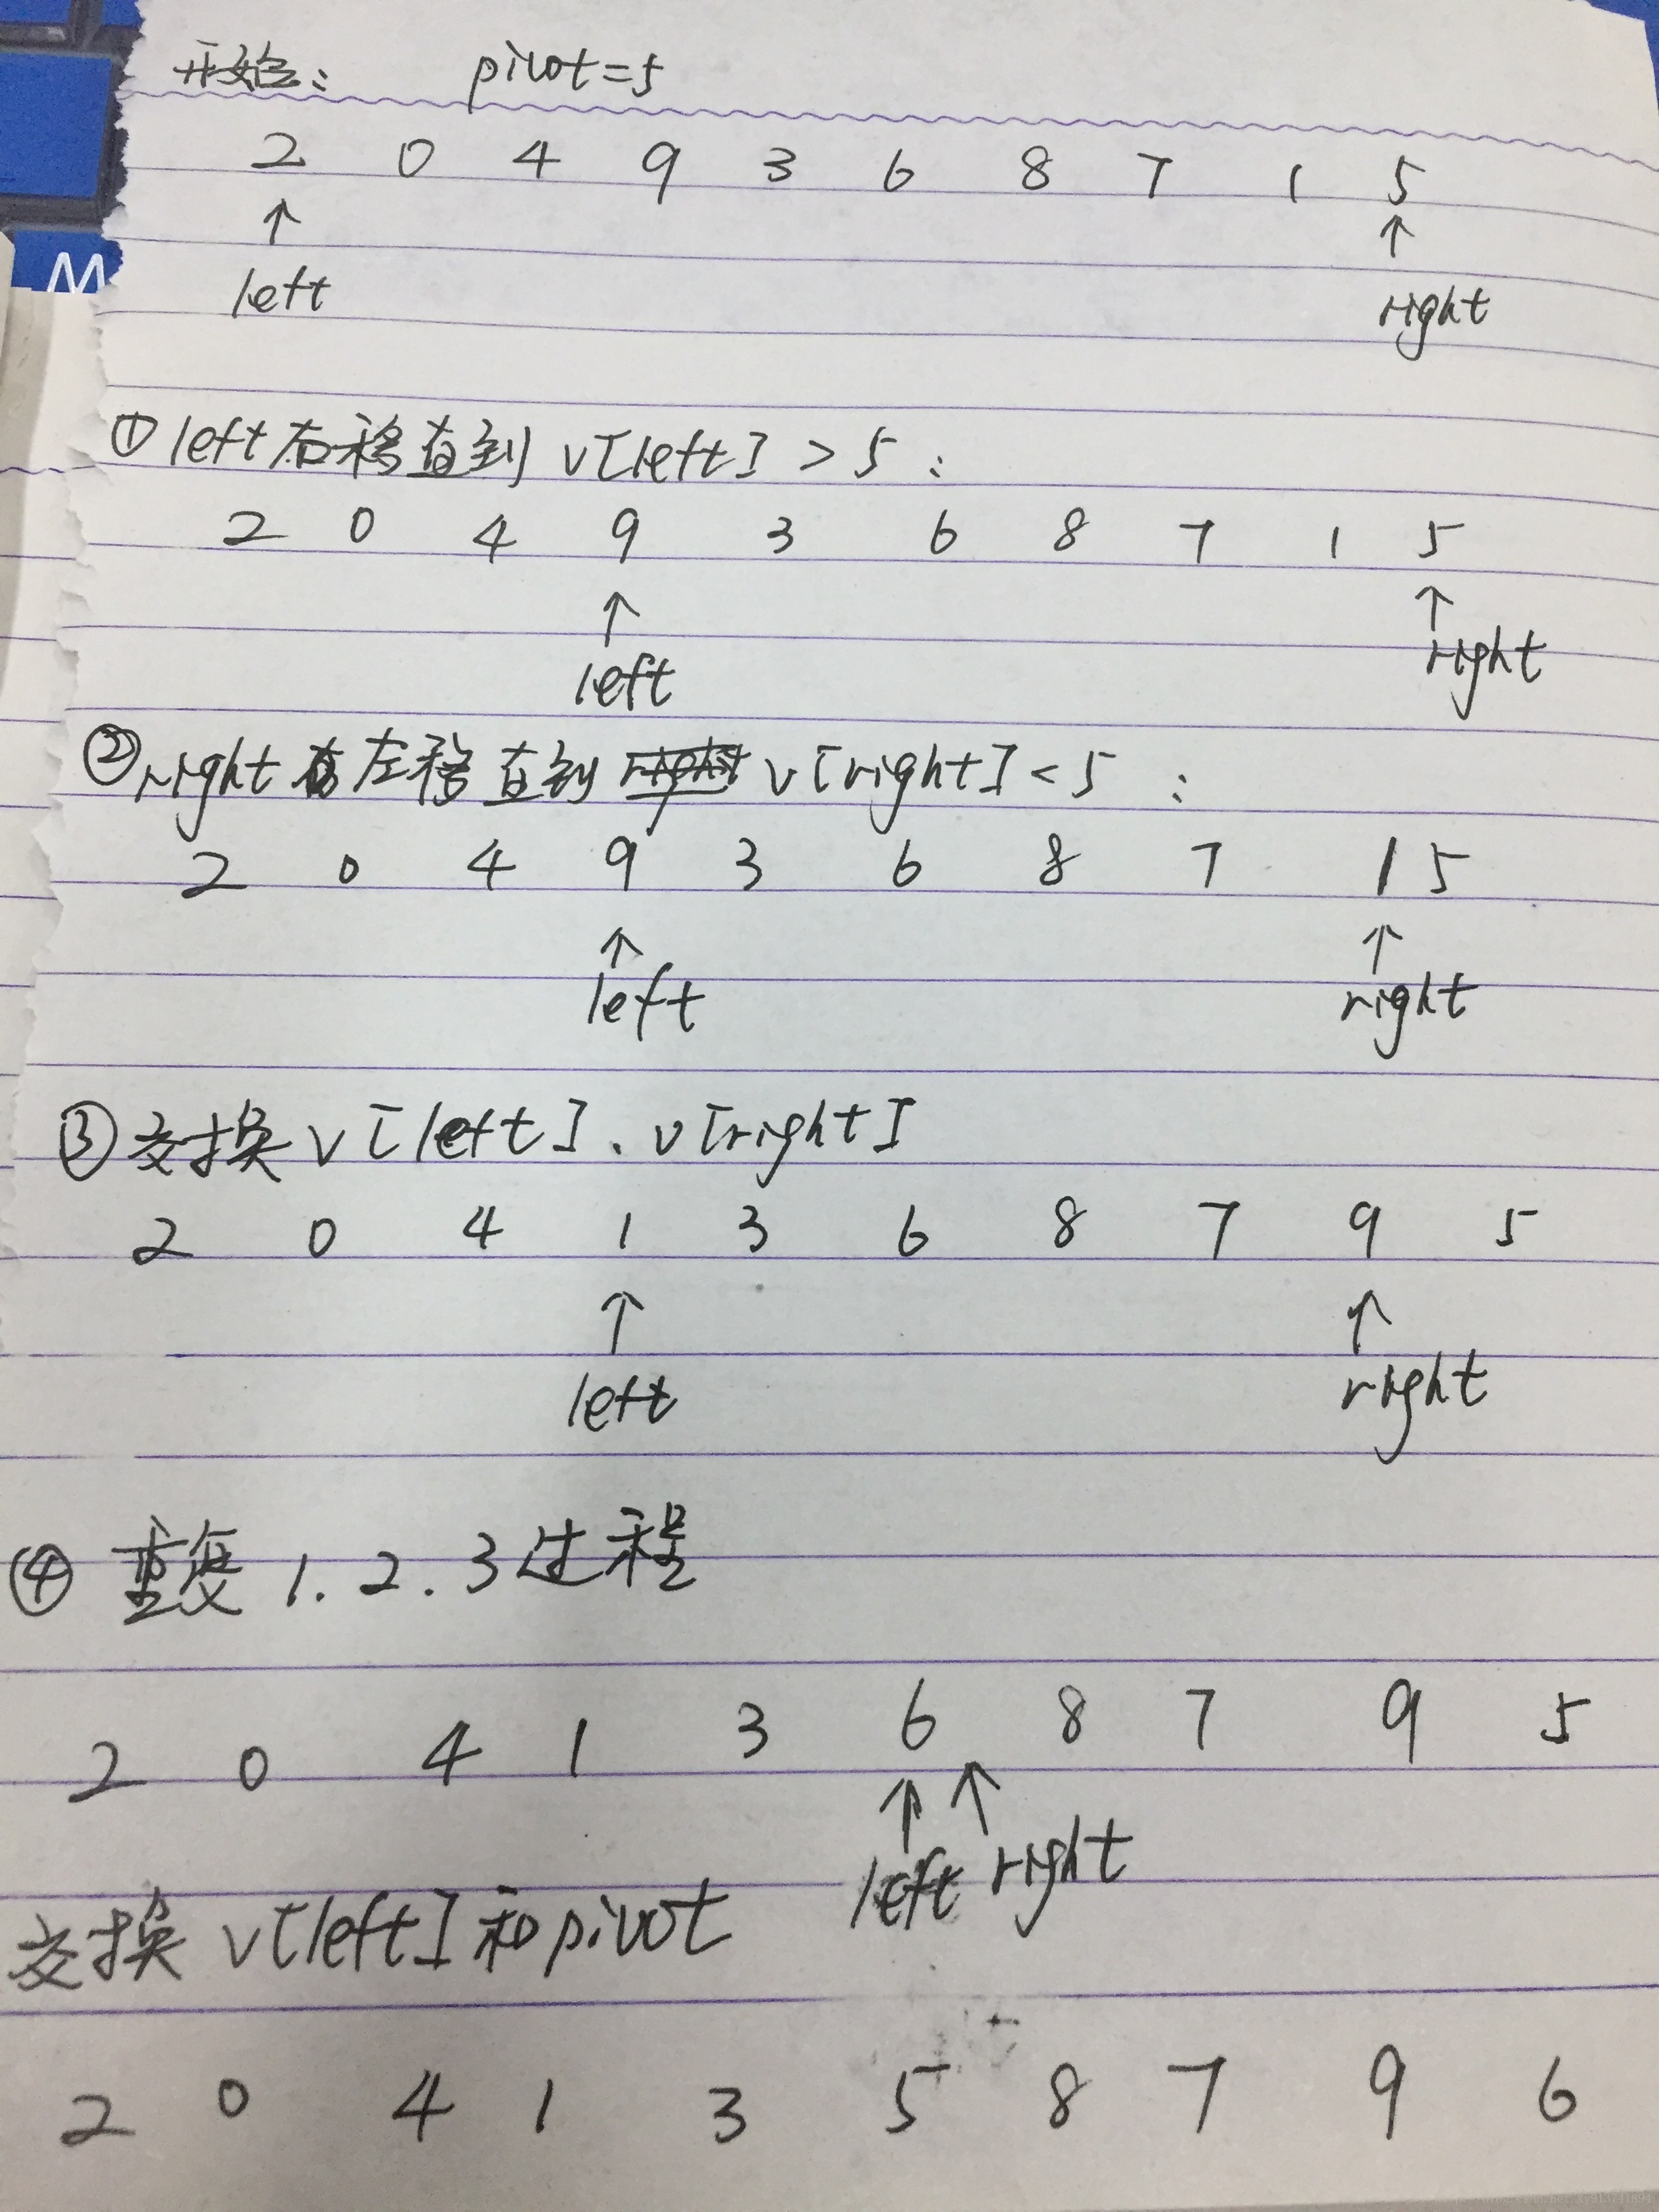 开始: pivot=5
2 0 4 9 3 6 8 7 1 5
↑ ↑
left right
① left右移直到 v[left] > 5 :
2 0 4 9 3 6 8 7 1 5
↑ ↑
left right
② right 左移直到 v[right] < 5 :
2 0 4 9 3 6 8 7 1 5
↑ ↑
left right
③ 交换 v[left]、v[right]
2 0 4 1 3 6 8 7 9 5
↑ ↑
left right
④ 重复 1. 2. 3过程
2 0 4 1 3 6 8 7 9 5
↑ ↑
left right
交换 v[left] 和 pivot
2 0 4 1 3 5 8 7 9 6